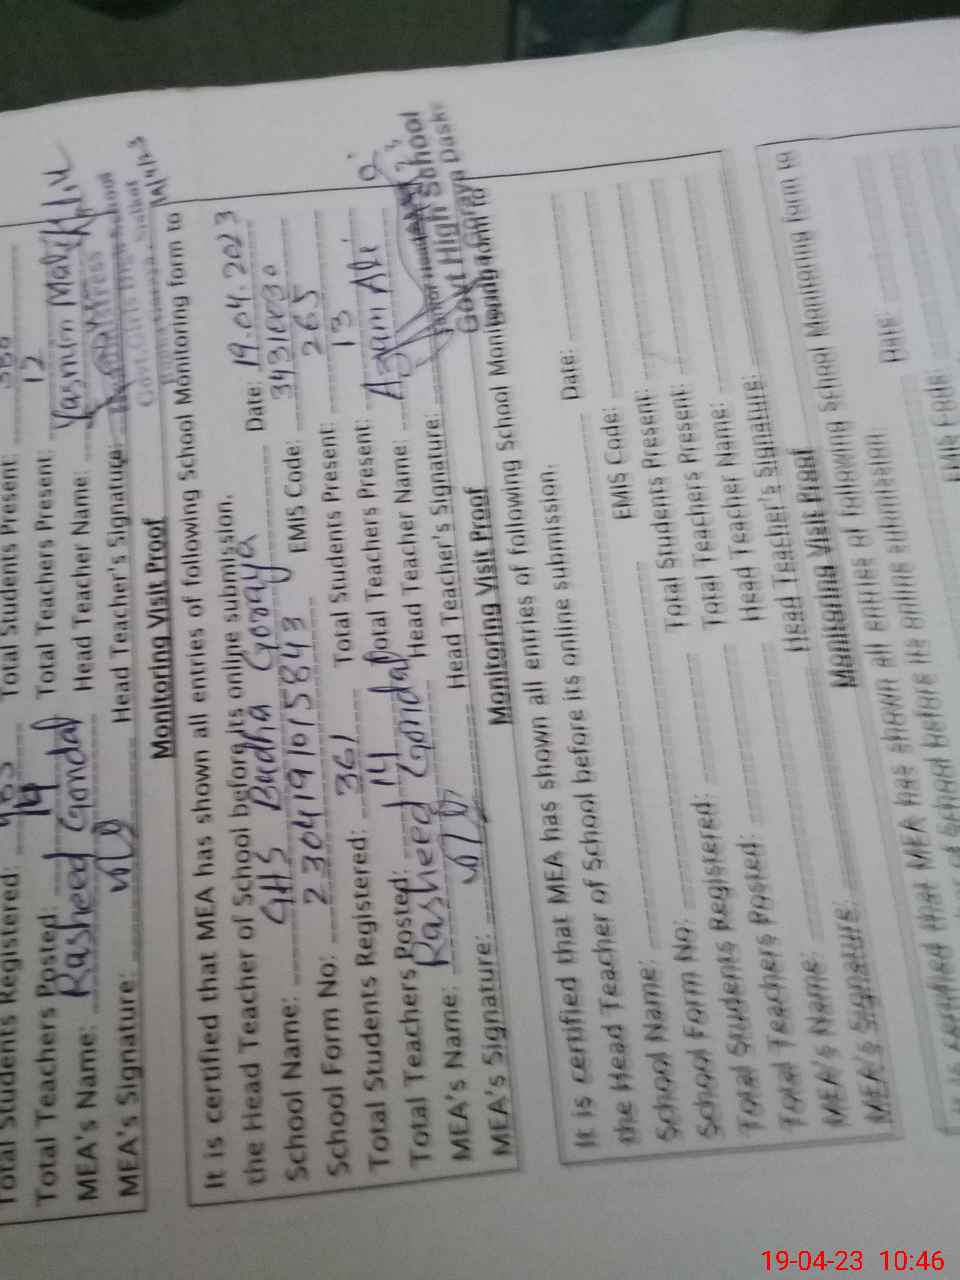 Total Students Registered: Total Students Present:
Total Teachers Posted: 14 Total Teachers Present: 12
MEA's Name: Rasheed Gondal Head Teacher Name: Yasmin
MEA's Signature: Head Teacher's Signature:
Monitoring Visit Proof
It is certified that MEA has shown all entries of following School Monitoring form to
the Head Teacher of School before its online submission.
School Name: GHS Budha Goraya Date: 19.04.2023
School Form No: 2304191015843 EMIS Code:
Total Students Registered: 361 Total Students Present: 265
Total Teachers Posted: 14 Total Teachers Present: 13
MEA's Name: Rasheed Gondal Head Teacher Name: Azam Ali
MEA's Signature: Head Teacher's Signature:
Govt High School
Goraya Daska
Monitoring Visit Proof
It is certified that MEA has shown all entries of following School Monitoring form to
the Head Teacher of School before its online submission.
School Name: Date:
School Form No: EMIS Code:
Total Students Registered: Total Students Present:
Total Teachers Posted: Total Teachers Present:
MEA's Name: Head Teacher Name:
MEA's Signature: Head Teacher's Signature:
Monitoring Visit Proof
It is certified that MEA has shown all entries of following School Monitoring form to
of School before its online submission.
Date:
EMIS Code:
19-04-23 10:46